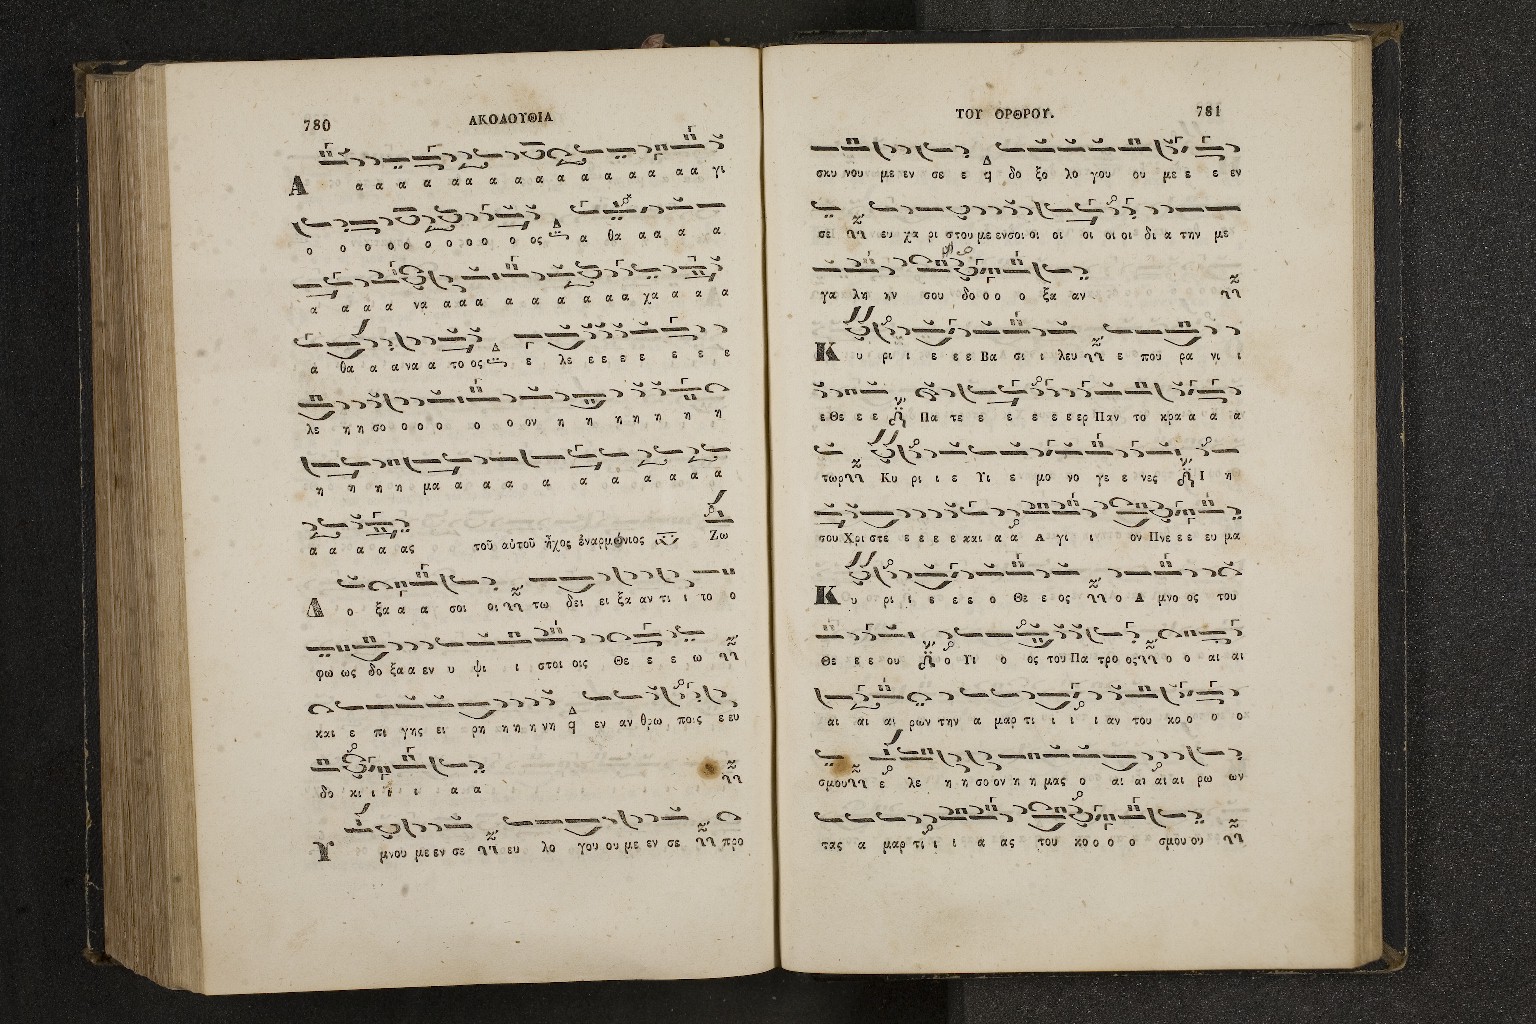 780 ΑΚΟΛΟΥΘΙΑ
Α α α α α α α α α α α α α α α α γι
ο ο ο ο ο ο ο ο ο ο ος α θα α α α α
α α α α να α α α α α α α α α χα α α α
α θα α α να α το ος ε λε ε ε ε ε ε ε ε
λε η η σο ο ο ο ο ο ον η η η η η η η
η η η η μα α α α α α α α α α
α α α α ας τοῦ αὐτοῦ ἦχος ἐναρμόνιος Ζω
Δ ο ξα α α σοι οι τω δει ει ξα αν τι ι το ο
φω ως δο ξα α εν υ ψι ι στοι οις Θε ε ε ω
και ε πι γης ει ρη η η η νη εν αν θρω ποις ε ευ
δο κι ι ι ι α α
Υ μνου με εν σε ευ λο γου ου με εν σε προ
ΤΟΥ ΟΡΘΡΟΥ. 781
σκυ νου με εν σε ε δο ξο λο γου ου με ε ε εν
σε ευ χα ρι στου με εν σοι οι οι οι οι οι δι α την με
γα λη ην σου δο ο ο ο ξα αν
Κ υ ρι ι ε ε ε Βα σι ι λευ ε που ρα νι ι
ε Θε ε ε Πα τε ε ε ε ε ε ερ Παν το κρα α α α
τωρ Κυ ρι ι ε Υι ε μο νο γε ε νες Ι η
σου Χρι στε ε ε ε ε και α α Α γι ι ον Πνε ε ε ευ μα
Κ υ ρι ι ε ε ε ο Θε ε ος ο Α μνο ος του
Θε ε ε ου ο Υι ο ος του Πα τρο ος ο ο αι αι
αι αι αι ρων την α μαρ τι ι ι ι αν του κο ο ο ο
σμου ε λε η η σο ον η η μας ο αι αι αι αι ρω ων
τας α μαρ τι ι ι α ας του κο ο ο ο σμου ου